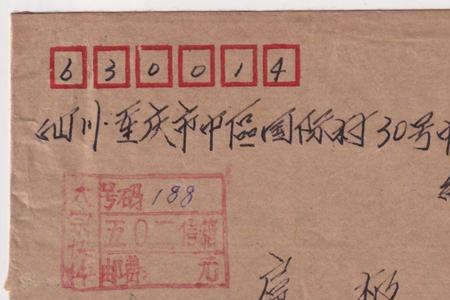 630014
四川·重庆市中區国际村30号
大宗
号码 188
五〇二信箱
邮费: 元